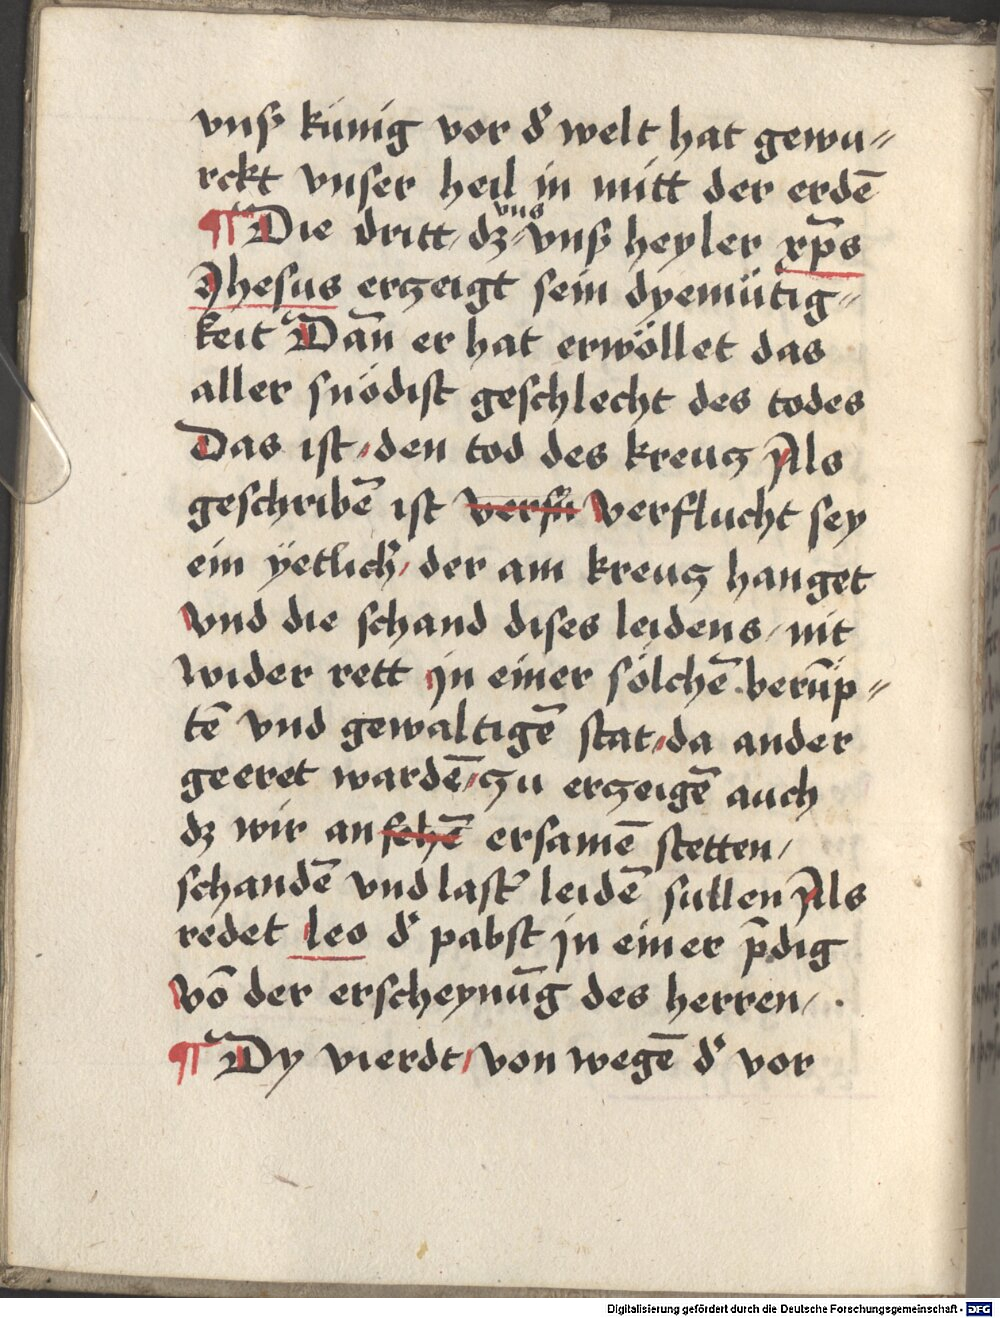 vnß künig vor d̕ welt hat gewu⸗
rckt vnser heil in mitt der erdē
¶ Die dritt / dʒ ⸗ vns vnß heyler xp̄s
Jhesus erzeigt sein dyemütig⸗
keit Dan̄ er hat erwöllet das
aller snödist geschlecht des todes
Das ist / den tod des kreutz Als
geschribē ist verflucht sey
ein yetlich̕ / der am kreutz hanget
vnd die schand dises leidens / nit
wider rett jn einer sölchē berūp⸗
tē vnd gewaltigē stat / da ander
geeret wardē / zu erzeigē auch
dʒ wir an sehē ersamē stetten /
schandē vnd last̕ leidē sullen Als
redet leo d̕ pabst jn einer p̄dig
vō der erscheynūg des herren / .
¶ Dy vierdt / von wegē d̕ vor
Digitalisierung gefördert durch die Deutsche Forschungsgemeinschaft - DFG